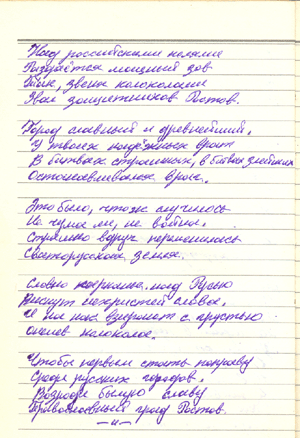 Над российскими полями
Раздаётся мощный зов
Язык, звеня колоколами
Звал защитников Ростов.
Город славный и древнейший,
У твоих надёжных врат
В битвах страшных, в боях злейших
Останавливался враг.
Это было, что ж случилось
Не чума ли, не война.
Странно вдруг переменилась
Святорусская земля.
Словно над Русью
нехристей слова.
И на них взирает с грустью
колокола.
Чтобы первым стать по праву
Среди русских городов.
Возроди былую славу
Православный град Ростов.
-"-